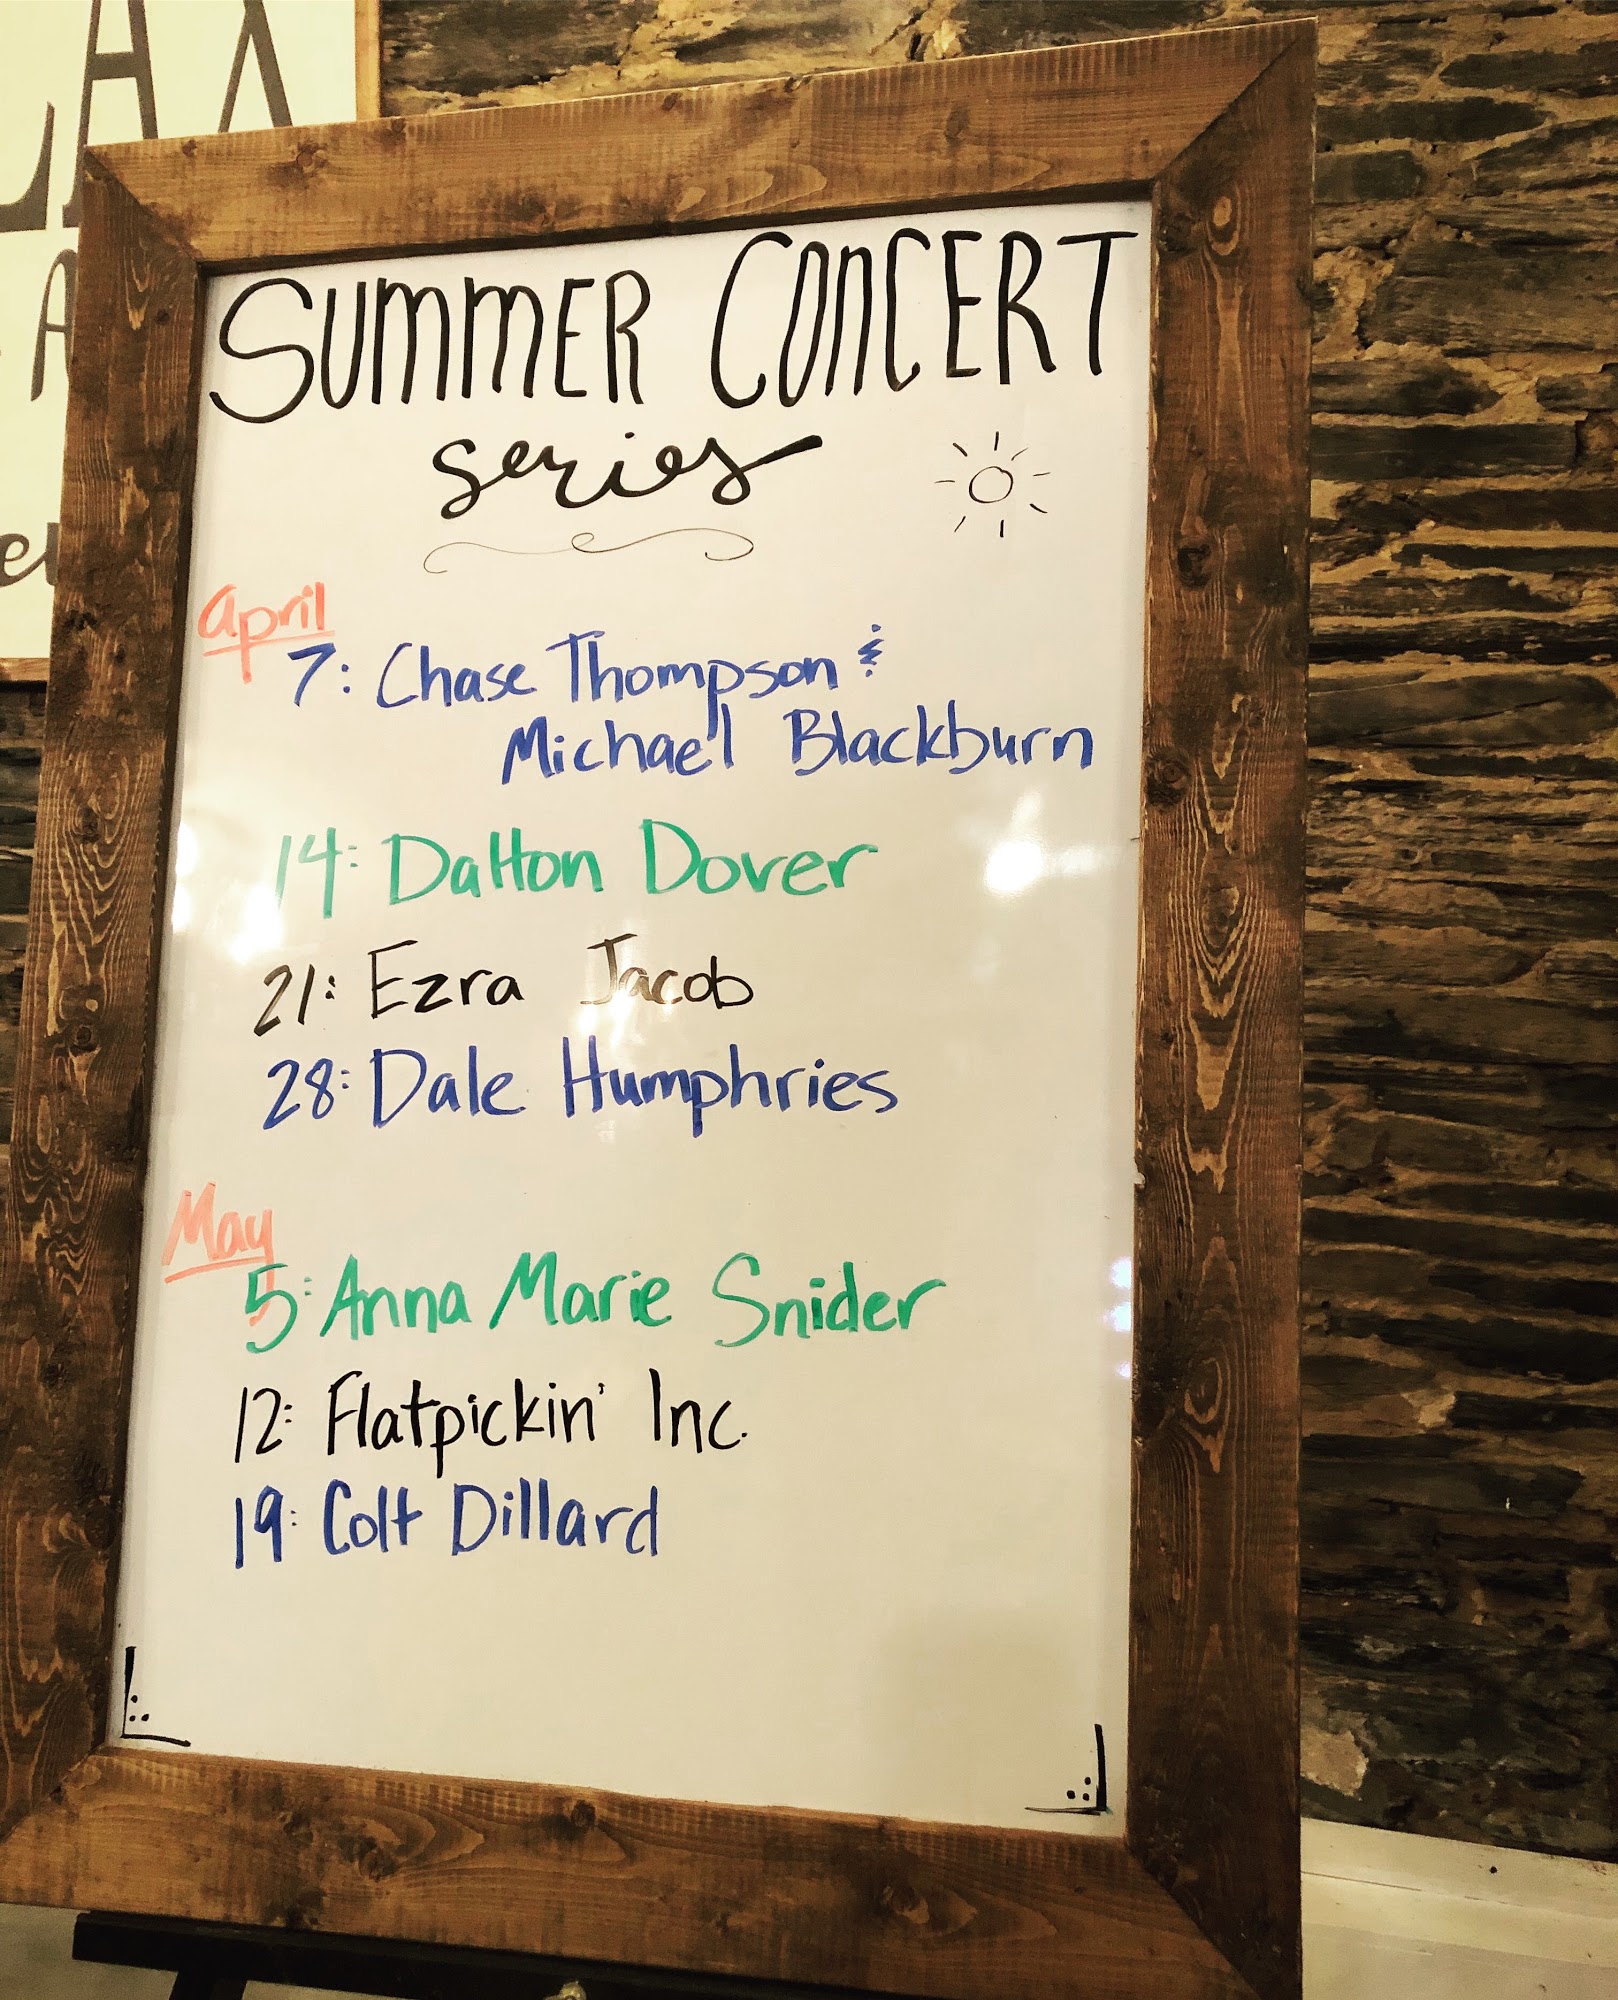 SUMMER CONCERT
series
April
7: Chase Thompson &
Michael Blackburn
14: Dalton Dover
21: Ezra Jacob
28: Dale Humphries
May
5: Anna Marie Snider
12: Flatpickin' Inc.
19: Colt Dillard